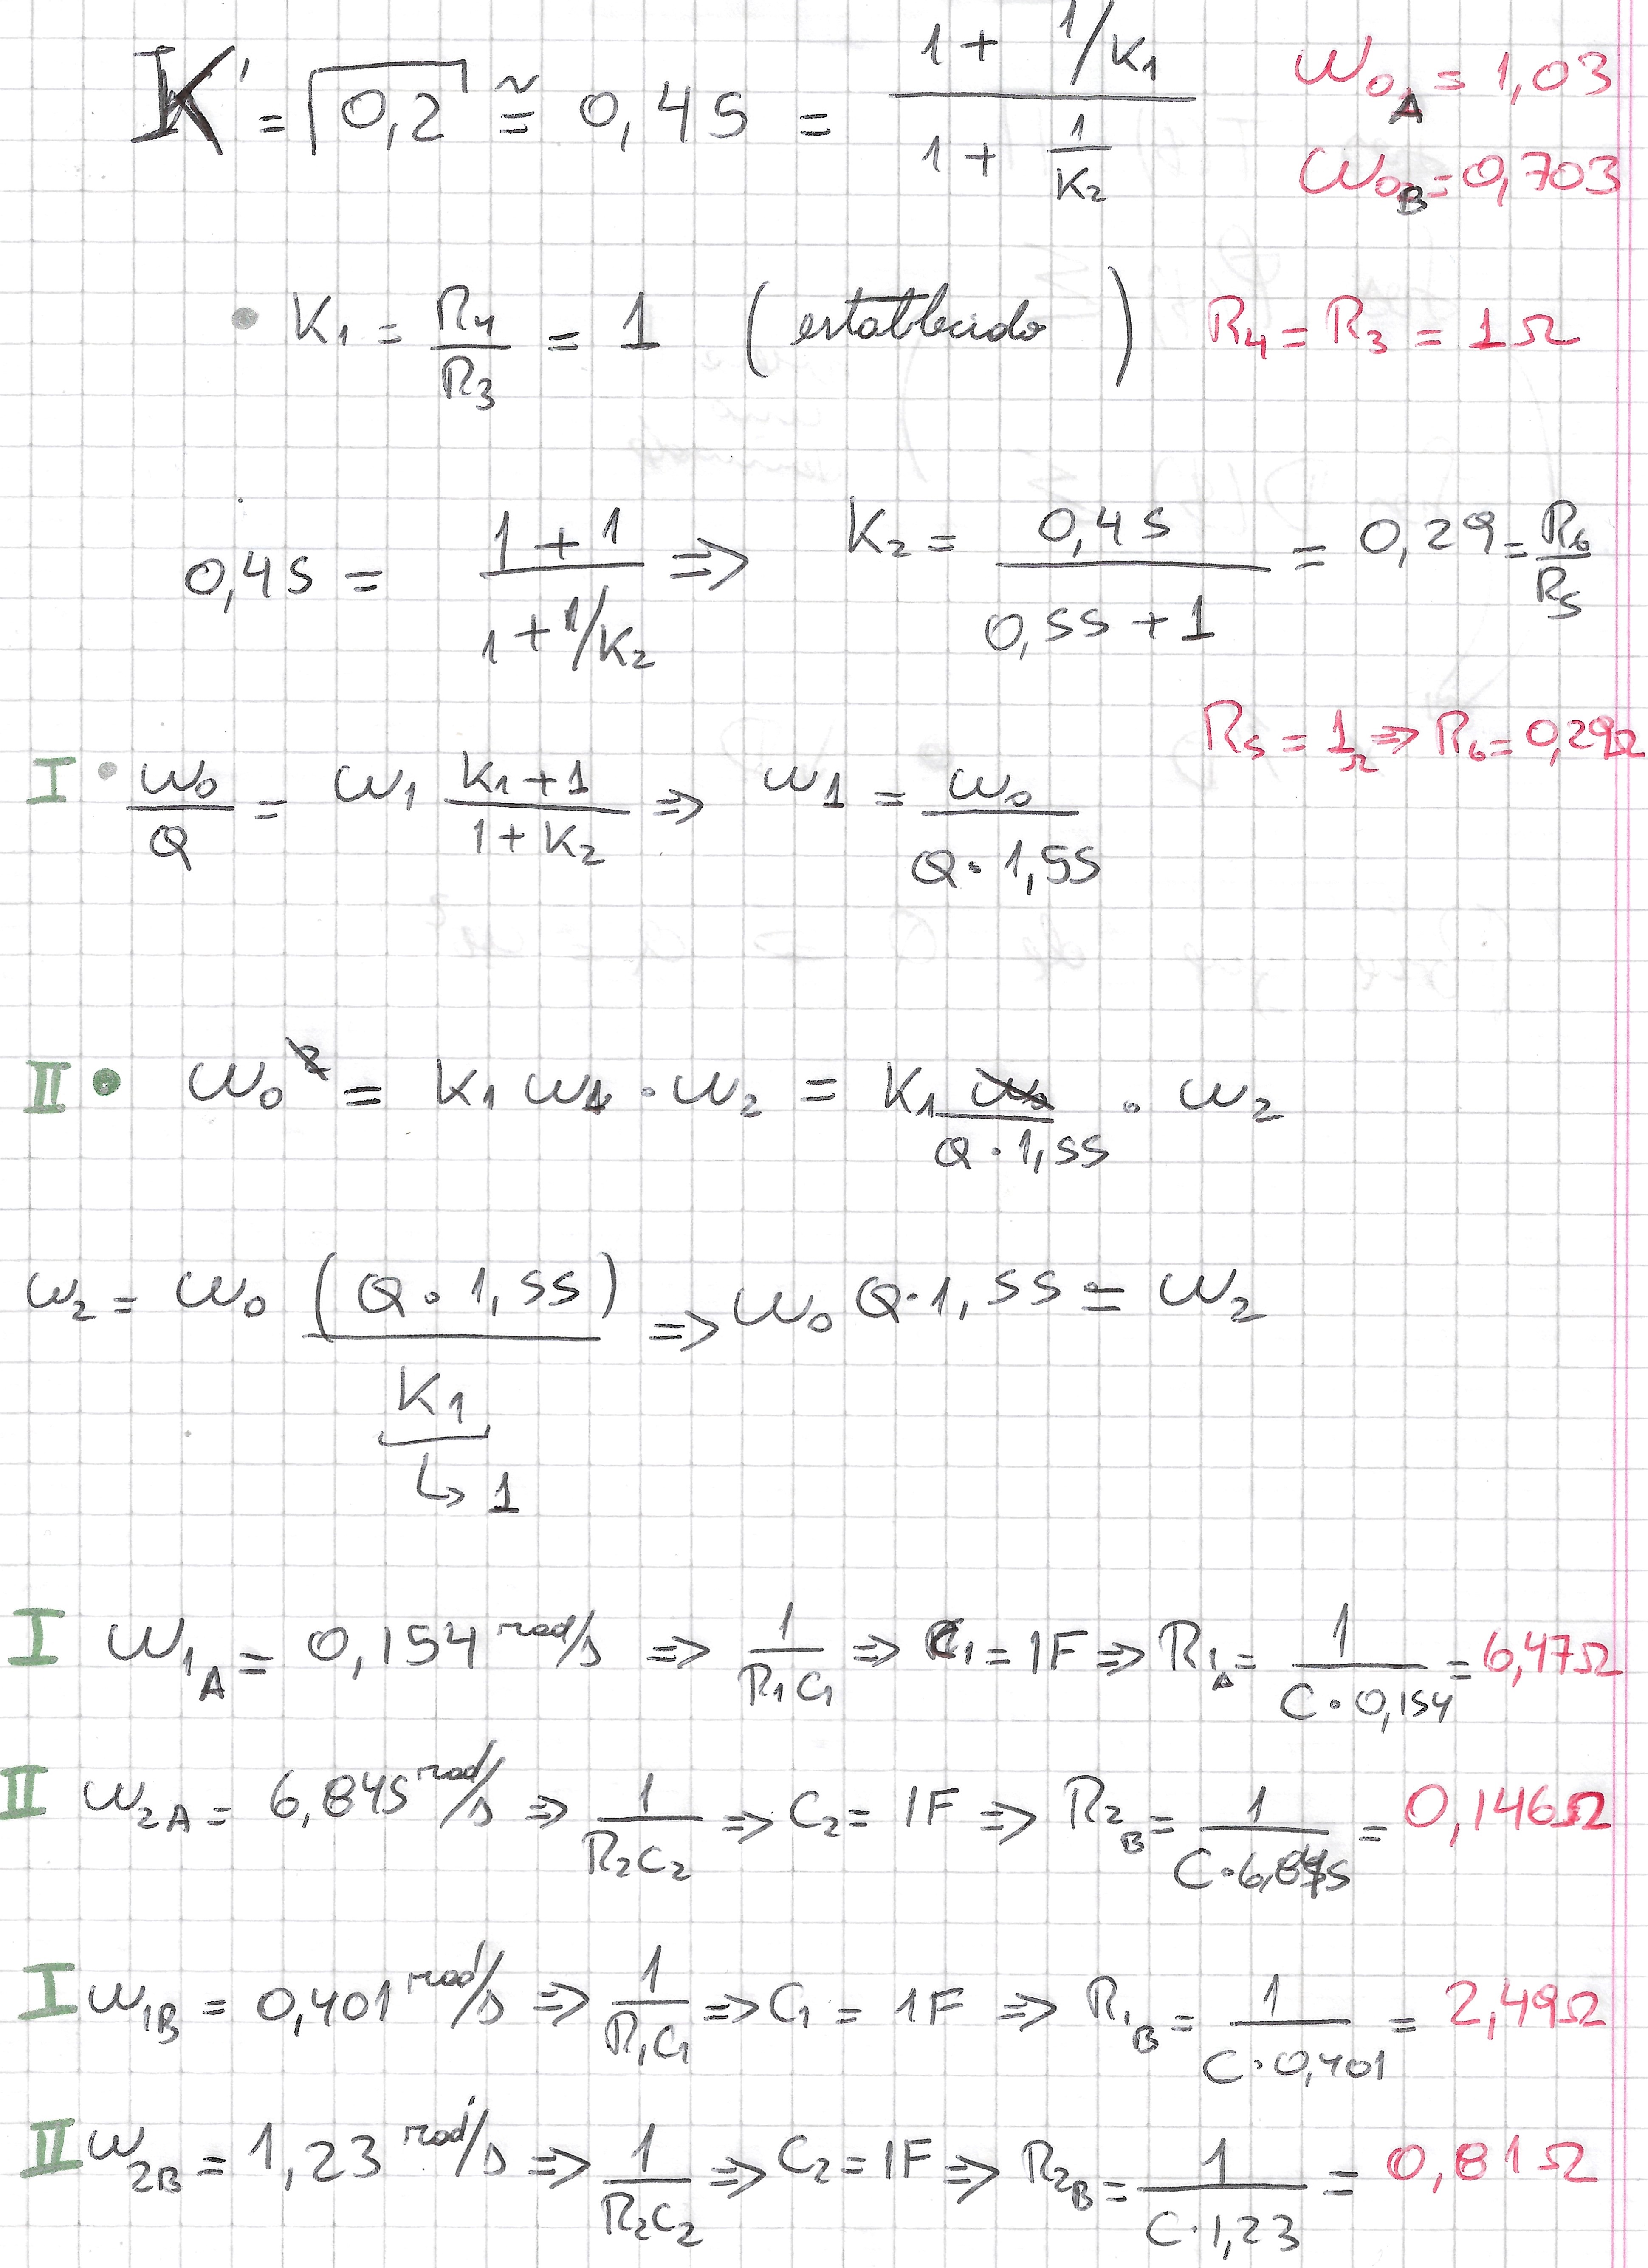 K' = √0,2 ≅ 0,45 = (1 + 1/K1) / (1 + 1/K2)   ω0A = 1,03
ω0B = 0,703
• K1 = R4/R3 = 1 (establecido) R4 = R3 = 1Ω
0,45 = (1 + 1) / (1 + 1/K2) ⇒ K2 = 0,45 / (0,55 + 1) = 0,29 = R6/R5
R5 = 1Ω ⇒ R6 = 0,29Ω
I • ω0/Q = ω1 (K1 + 1)/(1 + K2) ⇒ ω1 = ω0 / (Q · 1,55)
II • ω0² = K1 ω1 · ω2 = K1 ω0/(Q · 1,55) · ω2
ω2 = ω0 (Q · 1,55) / K1 ⇒ ω0 Q · 1,55 = ω2
↳ 1
I ω1A = 0,154 rad/s ⇒ 1/(R1C1) ⇒ C1 = 1F ⇒ R1A = 1/(C · 0,154) = 6,47Ω
II ω2A = 6,845 rad/s ⇒ 1/(R2C2) ⇒ C2 = 1F ⇒ R2B = 1/(C · 6,845) = 0,146Ω
I ω1B = 0,401 rad/s ⇒ 1/(R1C1) ⇒ C1 = 1F ⇒ R1B = 1/(C · 0,401) = 2,49Ω
II ω2B = 1,23 rad/s ⇒ 1/(R2C2) ⇒ C2 = 1F ⇒ R2B = 1/(C · 1,23) = 0,81Ω